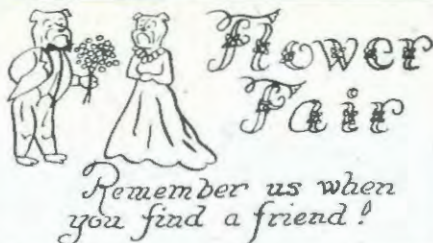 Flower
Fair
Remember us when
you find a friend!